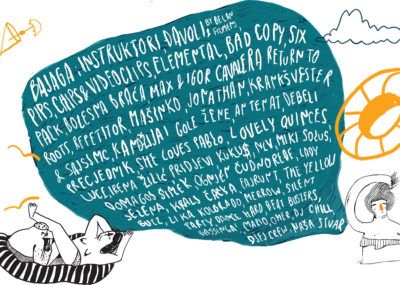 BAJAGA I INSTRUKTORI, ĐAVOLI,
BY BELAN
FILMERS
PIPS CHIPS & VIDEOCLIPS, ELEMENTAL, BAD COPY, SIX
PACK, BOLESNA BRAĆA MAX & IGOR CAVALERA RETURN TO
ROOTS, REPETITOR MAŠINKO, JONATHAN, KRANKŠVESTER
& SASSJA MC, KANDŽIJA I GOLE ŽENE, ANTENAT DEBELI
PRECJEDNIK, SHE LOVES PABLO, LOVELY QUINCES
LUCE, IRENA ŽILIĆ, PRIDJEVI, KUKU$, NLV, MIKI SOLUS,
DOMAGOJ ŠIMEK, OGNJEN ČUDNOREĐE, LADY
SELENA, KRALJ ČAČKA, FAŠRUNT, THE YELLOW
BOIZ, LIKA KOLORADO, MERROW, SILENT
PARTY DANCE HARD BEAT BUSTERS,
CHILL,
CREW, NAŠA STVAR